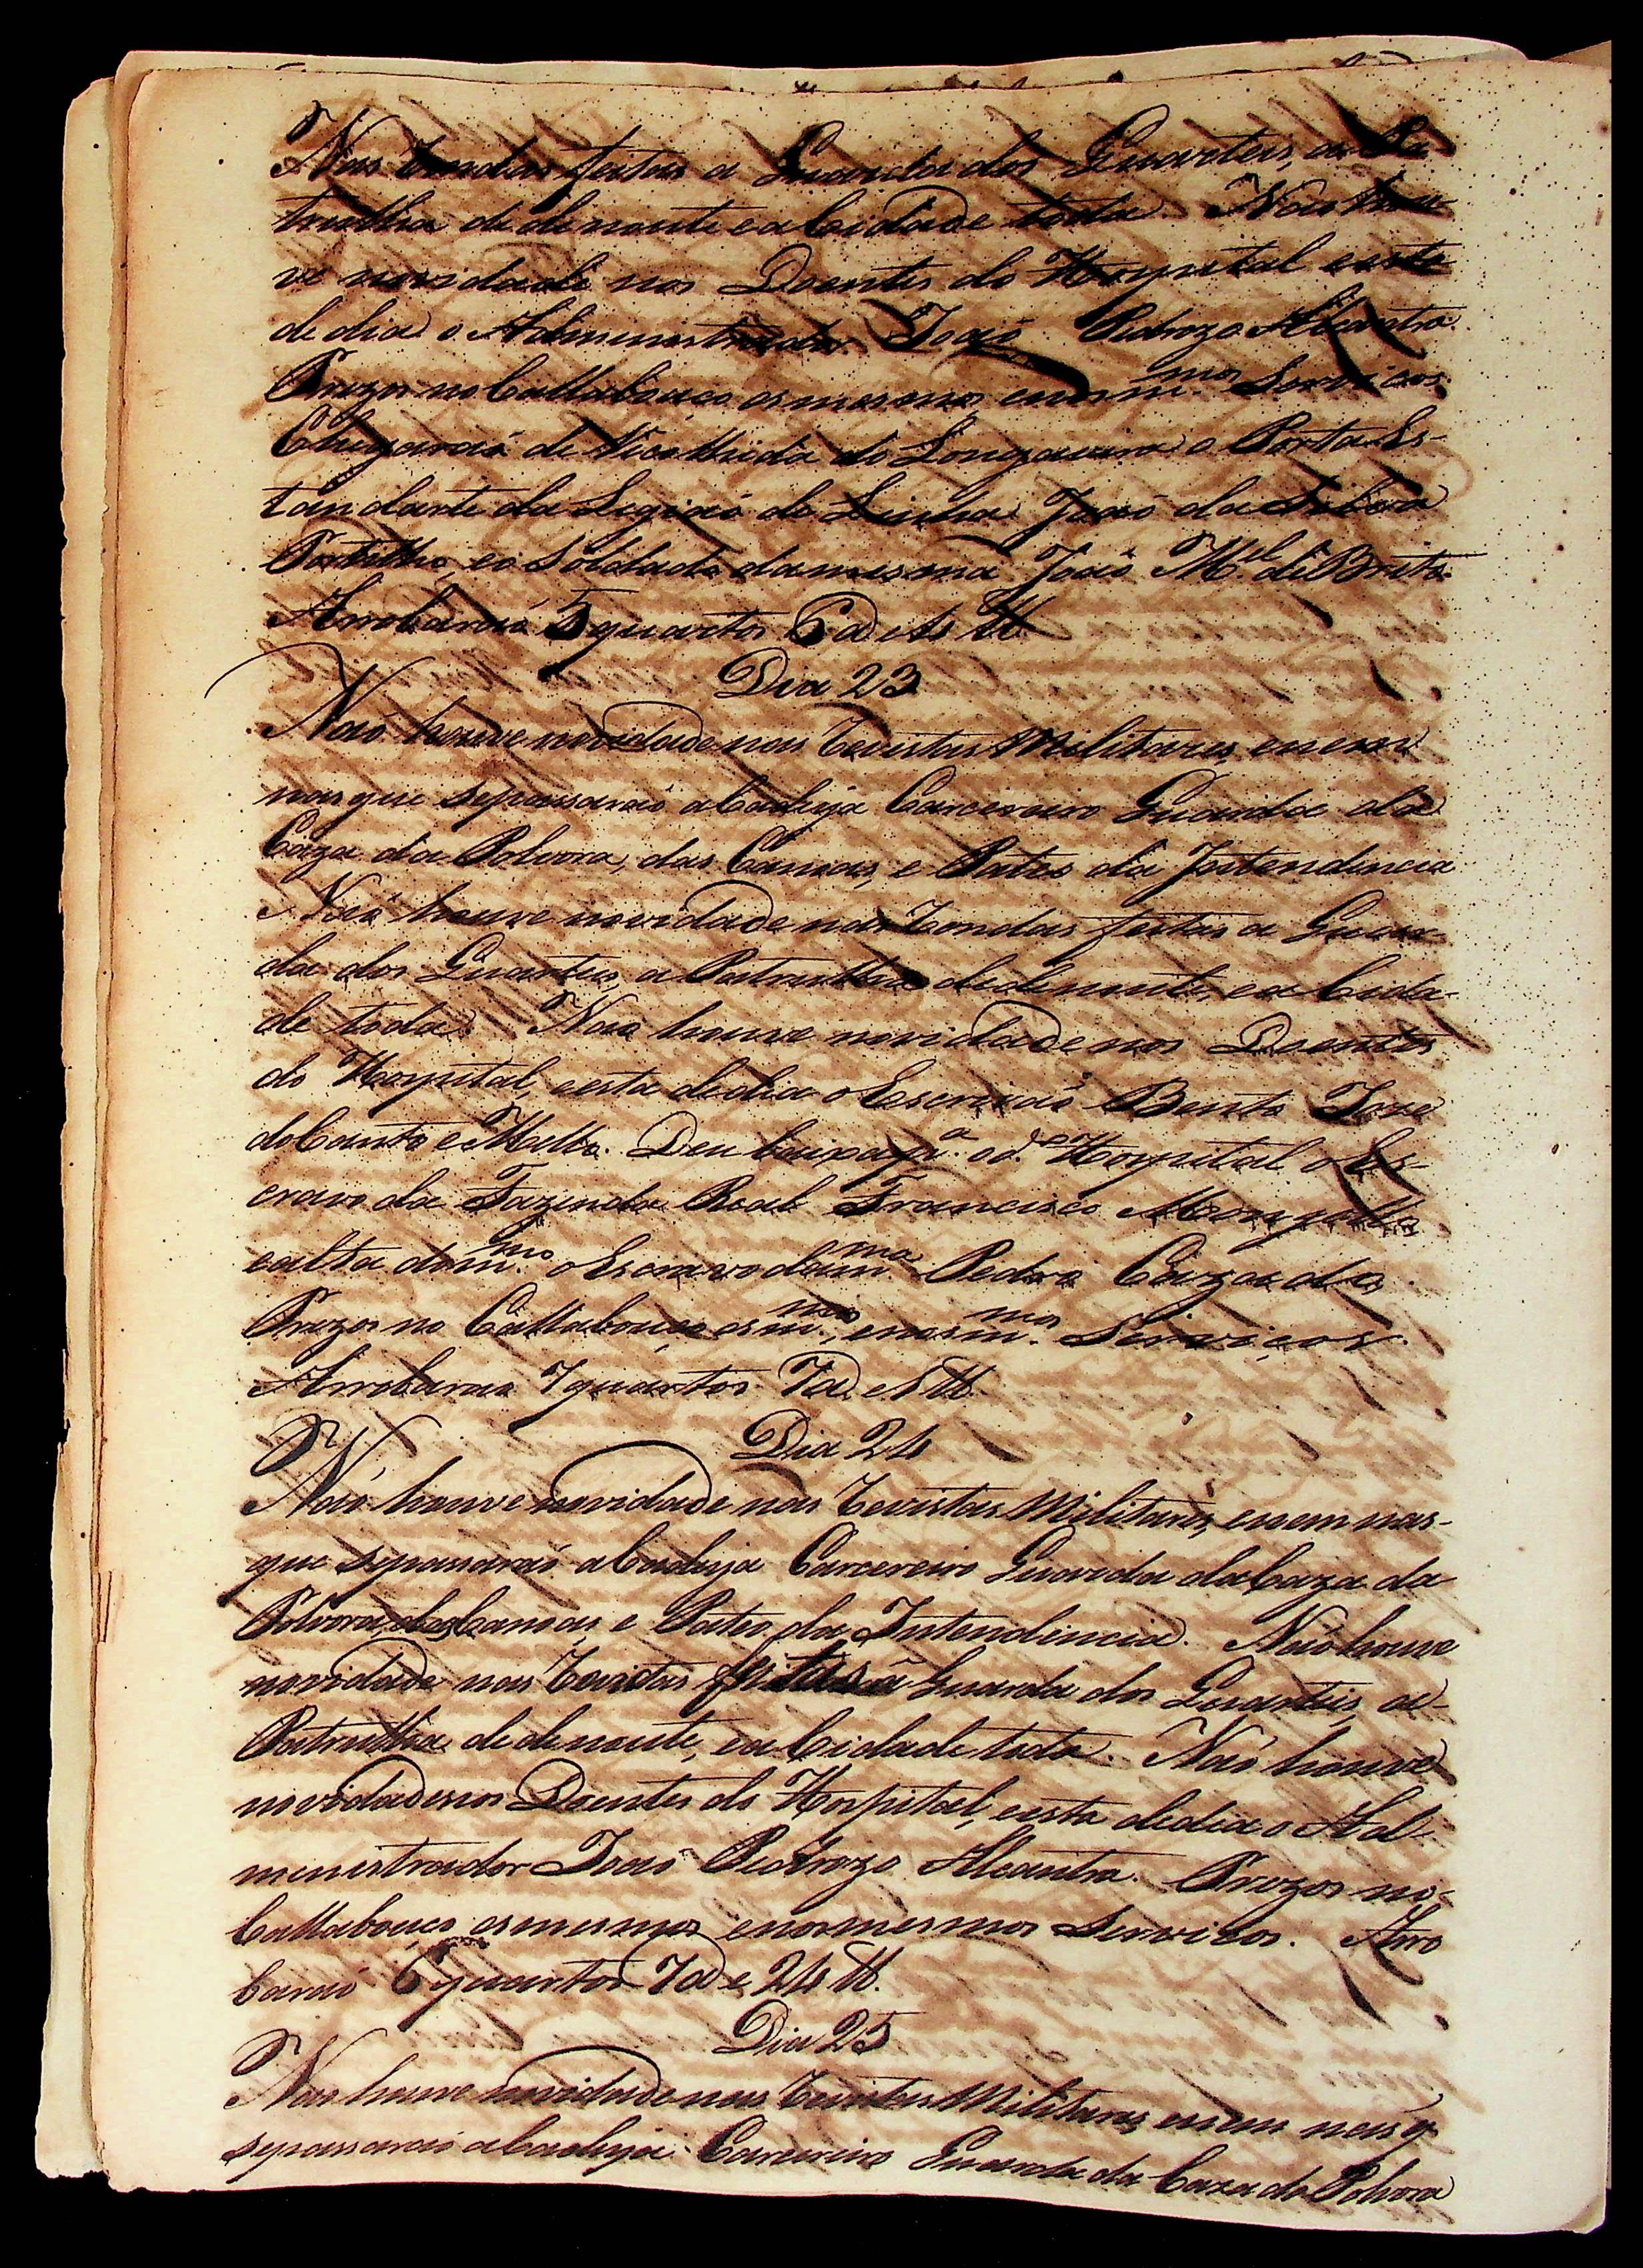 Nas Rondas feitas a Guarda dos Quarteis, a Pa-
trulha de de noute e a Cidade toda. Não hou-
ve novidade nos Doentes do Hospital e esta
de dia o Administrador João Pedrozo Alcantra.
Prezos no Callabouço os mesmos, e nos m.mos Serviços.
Chegarão de Viamão o Porta Es-
tandarte da Legião de Linha João da Silva
Portilho, e o Soldado da mesma João M.el de Brito.
Arrobarão 5 quartos 6@ e 15 ℔
Dia 23
Não houve novidade nas Revistas Militares, e nem
nas que se passarão a Cadeya Carcereiro Guarda da
Caza da Polvora, das Canoas, e Pateo da Intendencia
Não houve novidade nas Rondas feitas a Guar-
da dos Quarteis, a Patrulha de de noute, e a Cida-
de toda. Não houve novidade nos Doentes
do Hospital, e esta de dia o Escrivão Bento Joze
do Canto e Mello. Deu baixa p.a o d.o Hospital o Es-
cravo da Fazenda Real Francisco Mongollo
e alta do m.mo o Escravo da m.ma Pedro Cazado
Prezos no Callabouço os m.mos, e nos m.mos Serviços.
Arrobarão 7 quartos 7@ e 15 ℔
Dia 24
Não houve novidade nas Revistas Militares, e nem nas-
que se passarão a Cadeya Carcereiro Guarda da Caza da
Polvora, das Canoas, e Pateo da Intendencia. Não houve
novidade nas Rondas feitas â Guarda dos Quarteis, a-
Patrulha de de noute, e a Cidade toda. Não houve
novidade nos Doentes do Hospital, e esta de dia o Ad-
ministrador João Pedrozo Alcantra. Prezos no-
Callabouço os mesmos, e nos mesmos Serviços. Arro
barão 6 quartos 7@ e 24 ℔.
Dia 25
Não houve novidade nas Revistas Militares, e nem nas q
se passarão a Cadeya Carcereiro Guarda da Caza da Polvora